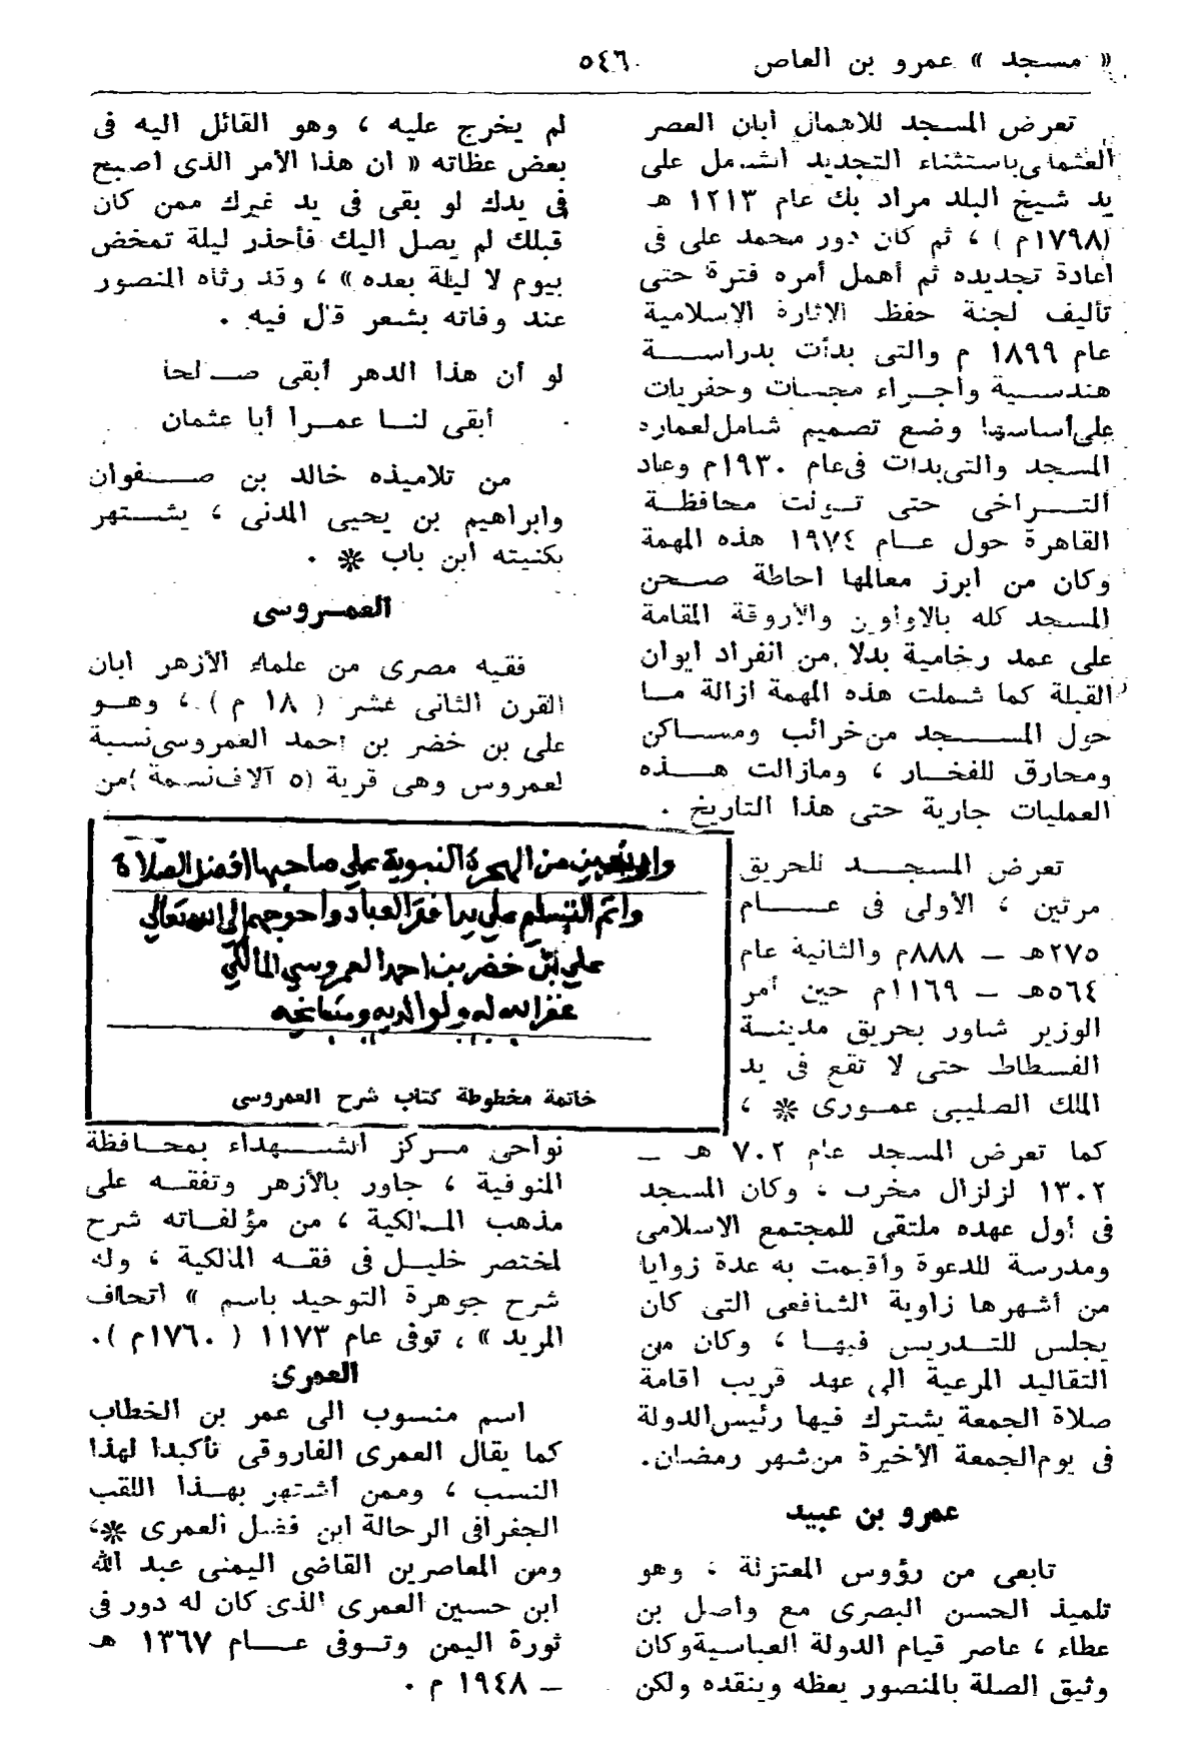 « مسجد » عمرو بن العاص
٥٤٦
تعرض المسجد للاهمال أبان العصر
العثمانى باستثناء التجديد الشامل على
يد شيخ البلد مراد بك عام ١٢١٣ هـ
(١٧٩٨م) ، ثم كان دور محمد على فى
اعادة تجديده ثم أهمل أمره فترة حتى
تأليف لجنة حفظ الاثارة الاسلامية
عام ١٨٩٩ م والتى بدأت بدراسة
هندسية وأجراء مجسات وحفريات
على أساسها وضع تصميم شامل لعمارة
المسجد والتى بدات فى عام ١٩٣٠م وعاد
التراخى حتى تولت محافظة
القاهرة حول عام ١٩٧٤ هذه المهمة
وكان من ابرز معالمها احاطة صحن
المسجد كله بالاواوين والأروقة المقامة
على عمد رخامية بدلا من انفراد ايوان
القبلة كما شملت هذه المهمة ازالة ما
حول المسجد من خرائب ومساكن
ومحارق للفخار ، ومازالت هذه
العمليات جارية حتى هذا التاريخ .
تعرض المسجد للحريق
مرتين ، الأولى فى عام
٢٧٥هـ – ٨٨٨م والثانية عام
٥٦٤هـ – ١١٦٩م حين أمر
الوزير شاور بحريق مدينة
الفسطاط حتى لا تقع فى يد
الملك الصليبى عمورى * ،
كما تعرض المسجد عام ٧٠٢ هـ –
١٣٠٢ لزلزال مخرب ، وكان المسجد
فى أول عهده ملتقى للمجتمع الاسلامى
ومدرسة للدعوة وأقيمت به عدة زوايا
من أشهرها زاوية الشافعى التى كان
يجلس للتدريس فيها ، وكان من
التقاليد المرعية الى عهد قريب اقامة
صلاة الجمعة يشترك فيها رئيس الدولة
فى يوم الجمعة الأخيرة من شهر رمضان.
عمرو بن عبيد
تابعى من رؤوس المعتزلة ، وهو
تلميذ الحسن البصرى مع واصل بن
عطاء ، عاصر قيام الدولة العباسية وكان
وثيق الصلة بالمنصور يعظه وينقده ولكن
لم يخرج عليه ، وهو القائل اليه فى
بعض عظاته « ان هذا الأمر الذى اصبح
فى يدك لو بقى فى يد غيرك ممن كان
قبلك لم يصل اليك فأحذر ليلة تمخض
بيوم لا ليلة بعده » ، وقد رثاه المنصور
عند وفاته بشعر قال فيه .
لو أن هذا الدهر أبقى صالحا
أبقى لنا عمرا أبا عثمان
من تلاميذه خالد بن صفوان
وابراهيم بن يحيى المدنى ، يشتهر
بكنيته ابن باب * .
العمروسى
فقيه مصرى من علماء الأزهر ابان
القرن الثانى عشر ( ١٨ م ) ، وهو
على بن خضر بن احمد العمروسى نسبة
لعمروس وهى قرية (٥ آلاف نسمة )من
واربعين من الهجرة النبوية على صاحبها افضل الصلاة
واتم التسليم على يد افقر العباد واحوجهم الى الله تعالى
على بن خضر بن احمد العمروسي المالكي
غفر الله له ولوالديه ومشايخه
خاتمة مخطوطة كتاب شرح العمروسى
نواحى مركز الشهداء بمحافظة
المنوفية ، جاور بالأزهر وتفقه على
مذهب المالكية ، من مؤلفاته شرح
لمختصر خليل فى فقه المالكية ، وله
شرح جوهرة التوحيد باسم » اتحاف
المريد » ، توفى عام ١١٧٣ ( ١٧٦٠م ).
العمرى
اسم منسوب الى عمر بن الخطاب
كما يقال العمرى الفاروقى تأكيدا لهذا
النسب ، وممن أشتهر بهذا اللقب
الجغرافى الرحالة ابن فضل العمرى *،
ومن المعاصرين القاضى اليمنى عبد الله
ابن حسين العمرى الذى كان له دور فى
ثورة اليمن وتوفى عام ١٣٦٧ هـ
– ١٩٤٨ م .